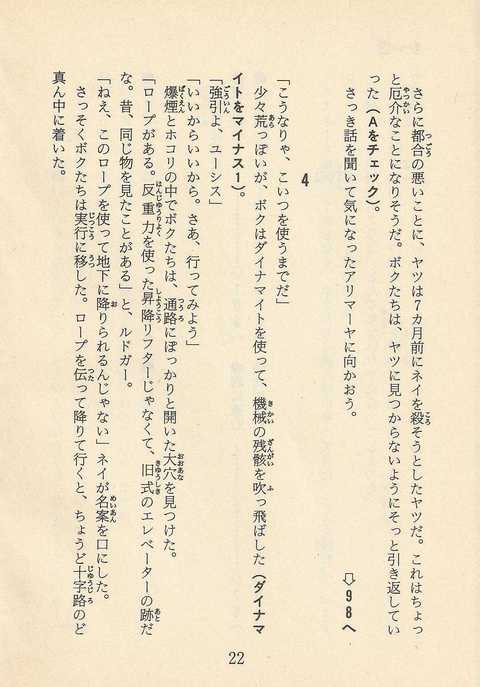 さらに都合の悪いことに、ヤツは7カ月前にネイを殺そうとしたヤツだ。これはちょっ
と厄介なことになりそうだ。ボクたちは、ヤツに見つからないようにそっと引き返してい
った(Aをチェック)。
さっき話を聞いて気になったアリマーヤに向かおう。
⇨98へ
4
「こうなりゃ、こいつを使うまでだ」
少々荒っぽいが、ボクはダイナマイトを使って、機械の残骸を吹っ飛ばした(ダイナマ
イトをマイナス1)。
「強引よ、ユーシス」
「いいからいいから。さあ、行ってみよう」
爆煙とホコリの中でボクたちは、通路にぽっかりと開いた大穴を見つけた。
「ロープがある。反重力を使った昇降リフターじゃなくて、旧式のエレベーターの跡だ
な。昔、同じ物を見たことがある」と、ルドガー。
「ねえ、このロープを使って地下に降りられるんじゃない」ネイが名案を口にした。
さっそくボクたちは実行に移した。ロープを伝って降りて行くと、ちょうど十字路のど
真ん中に着いた。
22